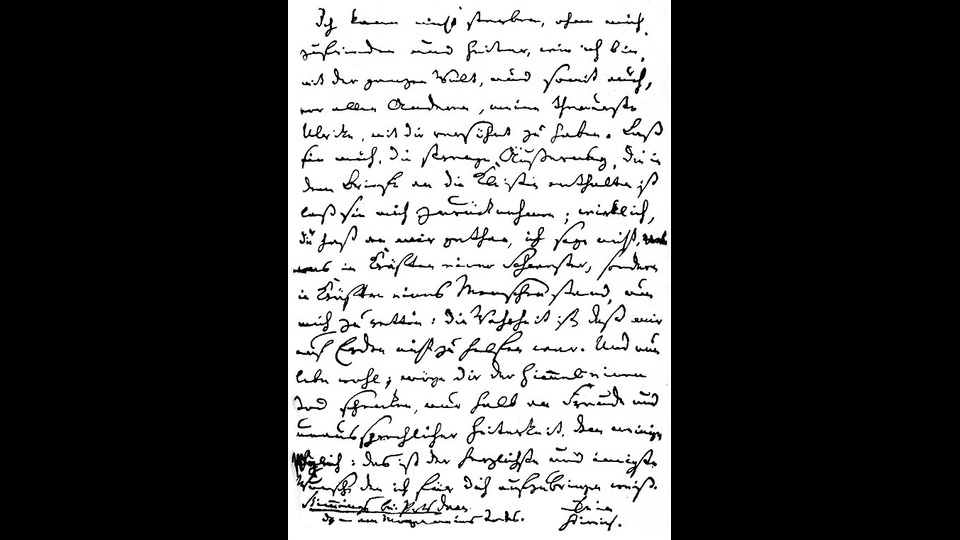 Ich kann nicht sterben, ohne mich,
zufrieden und heiter, wie ich bin,
mit der ganzen Welt, und somit auch,
vor allen Anderen, meine theuerste
Ulrike, mit dir versöhnt zu haben. Laß
sie mich, die strenge Äußerung, die in
dem Briefe an die Kleisten enthalten ist
laß sie mich zurücknehmen; wirklich,
du hast an mir gethan, ich sage nicht,
was in Kräften einer Schwester, sondern
in Kräften eines Menschen stand, um
mich zu retten: die Wahrheit ist, daß mir
auf Erden nicht zu helfen war. Und nun
lebe wohl; möge dir der Himmel einen
Tod schenken, nur halb an Freude und
unaussprechlicher Heiterkeit, dem meinigen
gleich: das ist der herzlichste und innigste
Wunsch, den ich für dich aufzubringen weiß.
Stimmings bei Potsdam. Dein
d. — am Morgen meines Todes. Heinrich.